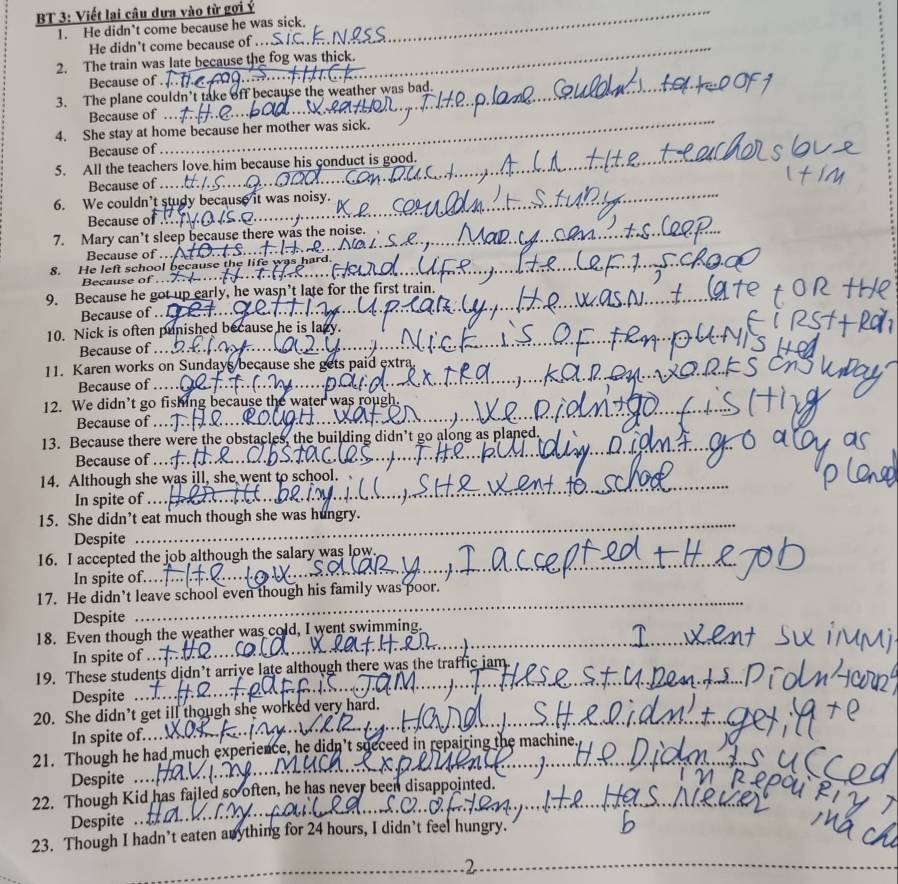 BT 3: Viết lại câu dựa vào từ gợi ý
1. He didn't come because he was sick.
He didn't come because of ... SICKNESS
2. The train was late because the fog was thick.
Because of ... THe fog S tHICK
3. The plane couldn't take off because the weather was bad.
Because of ... tHe bad weatHer, THe plane Couldn't take OFf
4. She stay at home because her mother was sick.
Because of
5. All the teachers love him because his conduct is good.
Because of ... HIS good conDuct, All tHe teachers love HIM
6. We couldn't study because it was noisy.
Because of ... noise, we couldn't stuDy
7. Mary can't sleep because there was the noise.
Because of ... tHe Noise, MaRy can't sleep
8. He left school because the life was hard.
Because of ... tHe Hard LiFe, He left school
9. Because he got up early, he wasn't late for the first train.
Because of ... getting up early, He wasN't late fOR tHe FiRSt tRain
10. Nick is often punished because he is lazy.
Because of ... being lazy, Nick is OFten pUNisHed
11. Karen works on Sundays because she gets paid extra.
Because of ... getting paid extRa, kaRen woRks on Sunday
12. We didn't go fishing because the water was rough.
Because of ... THe RougH waten, we Didn't go fisHing
13. Because there were the obstacles, the building didn't go along as planed.
Because of ... tHe Obstacles, THe builDing Didn't go aloy as plened
14. Although she was ill, she went to school.
In spite of ... being ill, SHe went to school
15. She didn't eat much though she was hungry.
Despite
16. I accepted the job although the salary was low.
In spite of ... tHe low salaRy, I accepted tHe JOb
17. He didn't leave school even though his family was poor.
Despite
18. Even though the weather was cold, I went swimming.
In spite of ... tHe cold weatHer, I went swiMMi
19. These students didn't arrive late although there was the traffic jam.
Despite ... tHe tRaffic JaM, THese stuDents Didn't
20. She didn't get ill though she worked very hard.
In spite of ... working veRy HaRd, SHe Didn't get
21. Though he had much experience, he didn't succeed in repairing the machine.
Despite ... Having Much experience, He Didn't succed in RepaiRiy machi
22. Though Kid has failed so often, he has never been disappointed.
Despite ... Having failed so often, He Has Never b
23. Though I hadn't eaten anything for 24 hours, I didn't feel hungry.
2